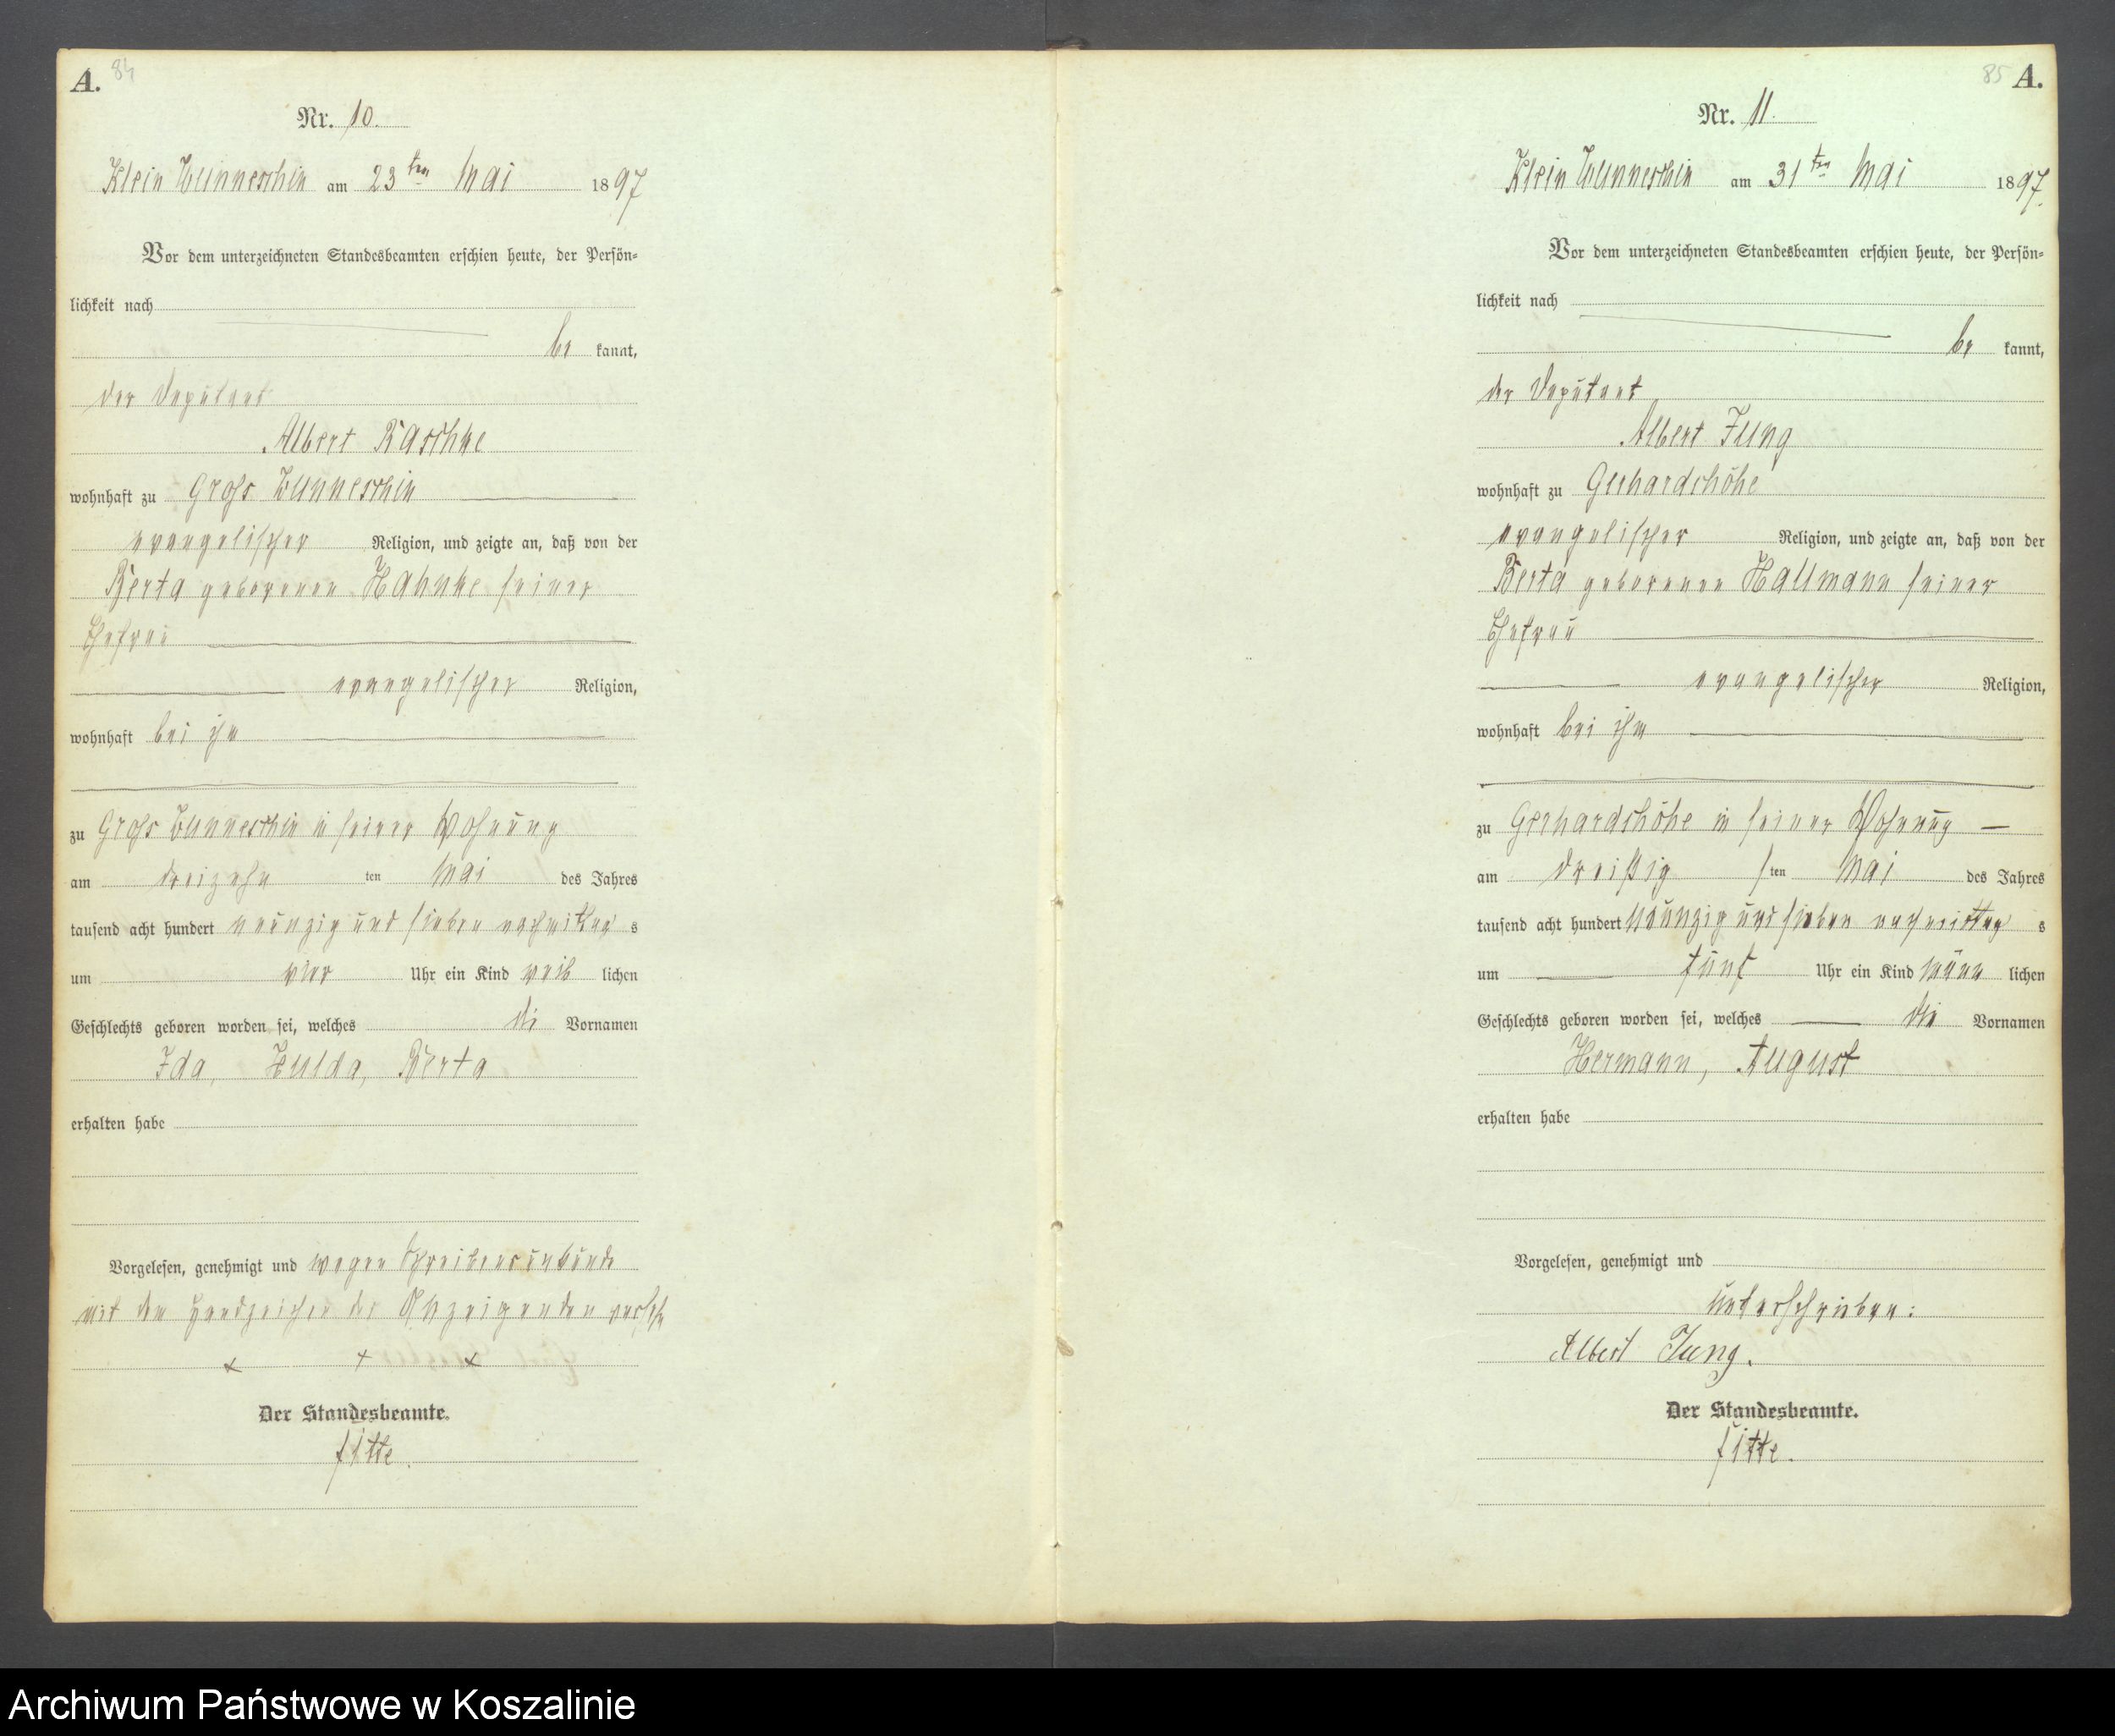 A. 84
Nr. 10.
Klein Wunneschin am 23ten Mai 1897
Vor dem unterzeichneten Standesbeamten erschien heute, der Persön-
lichkeit nach
be kannt,
der Deputant
Albert Raschke
wohnhaft zu Groß Wunneschin
evangelischer Religion, und zeigte an, daß von der
Berta geborenen Hahnke seiner
Ehefrau
evangelischer Religion,
wohnhaft bei ihm
zu Groß Wunneschin in seiner Wohnung
am dreizehn ten Mai des Jahres
tausend acht hundert neunzig und sieben nachmittag s
um vier Uhr ein Kind weib lichen
Geschlechts geboren worden sei, welches die Vornamen
Ida, Hulda, Berta
erhalten habe
Vorgelesen, genehmigt und wegen Schreibensunkunde
mit dem Handzeichen des Anzeigenden versehen
x + x
Der Standesbeamte.
Fitte.
85 A.
Nr. 11.
Klein Wunneschin am 31ten Mai 1897.
Vor dem unterzeichneten Standesbeamten erschien heute, der Persön-
lichkeit nach
be kannt,
der Deputant
Albert Jung
wohnhaft zu Gerhardshöhe
evangelischer Religion, und zeigte an, daß von der
Berta geborenen Hallmann seiner
Ehefrau
evangelischer Religion,
wohnhaft bei ihm
zu Gerhardshöhe in seiner Wohnung
am dreißig sten Mai des Jahres
tausend acht hundert neunzig und sieben nachmittag s
um fünf Uhr ein Kind männ lichen
Geschlechts geboren worden sei, welches die Vornamen
Hermann, August
erhalten habe
Vorgelesen, genehmigt und
unterschrieben:
Albert Jung.
Der Standesbeamte.
Fitte.
Archiwum Państwowe w Koszalinie